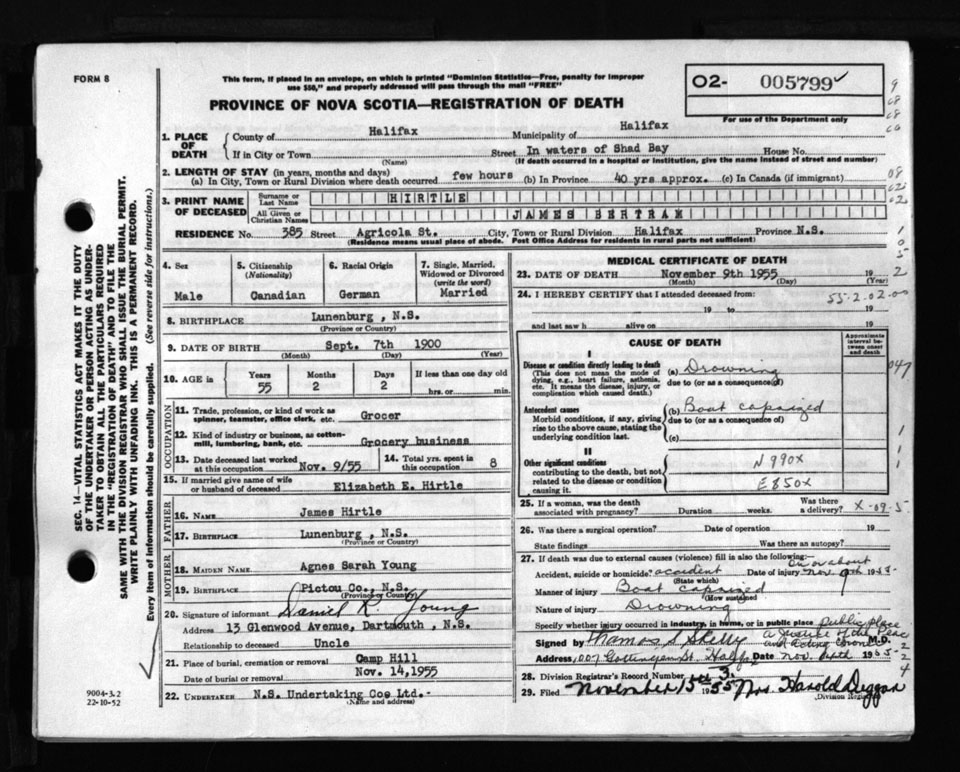 FORM 8
This form, if placed in an envelope, on which is printed "Dominion Statistics—Free, penalty for improper
use $50," and properly addressed will pass through the mail "FREE"
PROVINCE OF NOVA SCOTIA—REGISTRATION OF DEATH
02- 005799
For use of the Department only
1. PLACE OF DEATH
County of Halifax Municipality of Halifax
If in City or Town Street In waters of Shad Bay House No.
(Name) (If death occurred in a hospital or institution, give the name instead of street and number)
2. LENGTH OF STAY (in years, months and days)
(a) In City, Town or Rural Division where death occurred few hours (b) In Province 40 yrs approx. (c) In Canada (if immigrant)
3. PRINT NAME OF DECEASED
Surname or Last Name HIRTLE
All Given or Christian Names JAMES BERTRAM
RESIDENCE No. 385 Street Agricola St. City, Town or Rural Division Halifax Province N.S.
(Residence means usual place of abode. Post Office Address for residents in rural parts not sufficient)
4. Sex Male
5. Citizenship (Nationality) Canadian
6. Racial Origin German
7. Single, Married, Widowed or Divorced (write the word) Married
8. BIRTHPLACE Lunenburg , N.S.
(Province or Country)
9. DATE OF BIRTH Sept. 7th 1900
(Month) (Day) (Year)
10. AGE in Years 55 Months 2 Days 2 If less than one day old
hrs. or min.
OCCUPATION
11. Trade, profession, or kind of work as
spinner, teamster, office clerk, etc. Grocer
12. Kind of industry or business, as cotton-
mill, lumbering, bank, etc. Grocery business
13. Date deceased last worked
at this occupation Nov. 9/55
14. Total yrs. spent in
this occupation 8
15. If married give name of wife
or husband of deceased Elizabeth E. Hirtle
FATHER
16. NAME James Hirtle
17. BIRTHPLACE Lunenburg , N.S.
(Province or Country)
MOTHER
18. MAIDEN NAME Agnes Sarah Young
19. BIRTHPLACE Pictou Co., N.S.
(Province or Country)
20. Signature of informant Daniel R. Young
Address 13 Glenwood Avenue, Dartmouth , N.S.
Relationship to deceased Uncle
21. Place of burial, cremation or removal Camp Hill
Date of burial or removal Nov. 14,1955
22. UNDERTAKER N.S. Undertaking Coe Ltd.
(Name and address)
MEDICAL CERTIFICATE OF DEATH
23. DATE OF DEATH November 9th 1955 19
(Month) (Day) (Year)
24. I HEREBY CERTIFY that I attended deceased from:
55-2.02.00
19 to 19
and last saw h alive on 19
CAUSE OF DEATH
Approximate interval between onset and death
I
Disease or condition directly leading to death
(This does not mean the mode of
dying, e.g., heart failure, asthenia,
etc. It means the disease, injury, or
complication which caused death.)
(a) Drowning
due to (or as a consequence of)
Antecedent causes
Morbid conditions, if any, giving
rise to the above cause, stating the
underlying condition last.
(b) Boat capsized
due to (or as a consequence of)
(c)
II
Other significant conditions
contributing to the death, but not
related to the disease or condition
causing it.
N990X
E850X
25. If a woman, was the death
associated with pregnancy? Duration weeks. Was there a delivery? X-09-5
26. Was there a surgical operation? Date of operation 19
State findings Was there an autopsy?
27. If death was due to external causes (violence) fill in also the following:—
On or about
Accident, suicide or homicide? accident Date of injury Nov 9th 1955
(State which)
Manner of injury Boat capsized
(How sustained)
Nature of injury Drowning
Specify whether injury occurred in industry, in home, or in public place public place
Signed by Thomas S Skelly a Justice of the Peace and acting Coroner M.D.
Address, 1007 Gottingen St. Halifax Date Nov.
28. Division Registrar's Record Number 3.
29. Filed November 15 1955 Mrs. Harold Deggan
Division Registrar
SEC. 14—VITAL STATISTICS ACT MAKES IT THE DUTY
OF THE UNDERTAKER OR PERSON ACTING AS UNDER-
TAKER TO OBTAIN ALL THE PARTICULARS REQUIRED
IN THE "REGISTRATION OF DEATH" AND TO FILE THE
SAME WITH THE DIVISION REGISTRAR WHO SHALL ISSUE THE BURIAL PERMIT.
WRITE PLAINLY WITH UNFADING INK. THIS IS A PERMANENT RECORD.
Every item of information should be carefully supplied. (See reverse side for instructions.)
9004-3.2
22-10-52
047